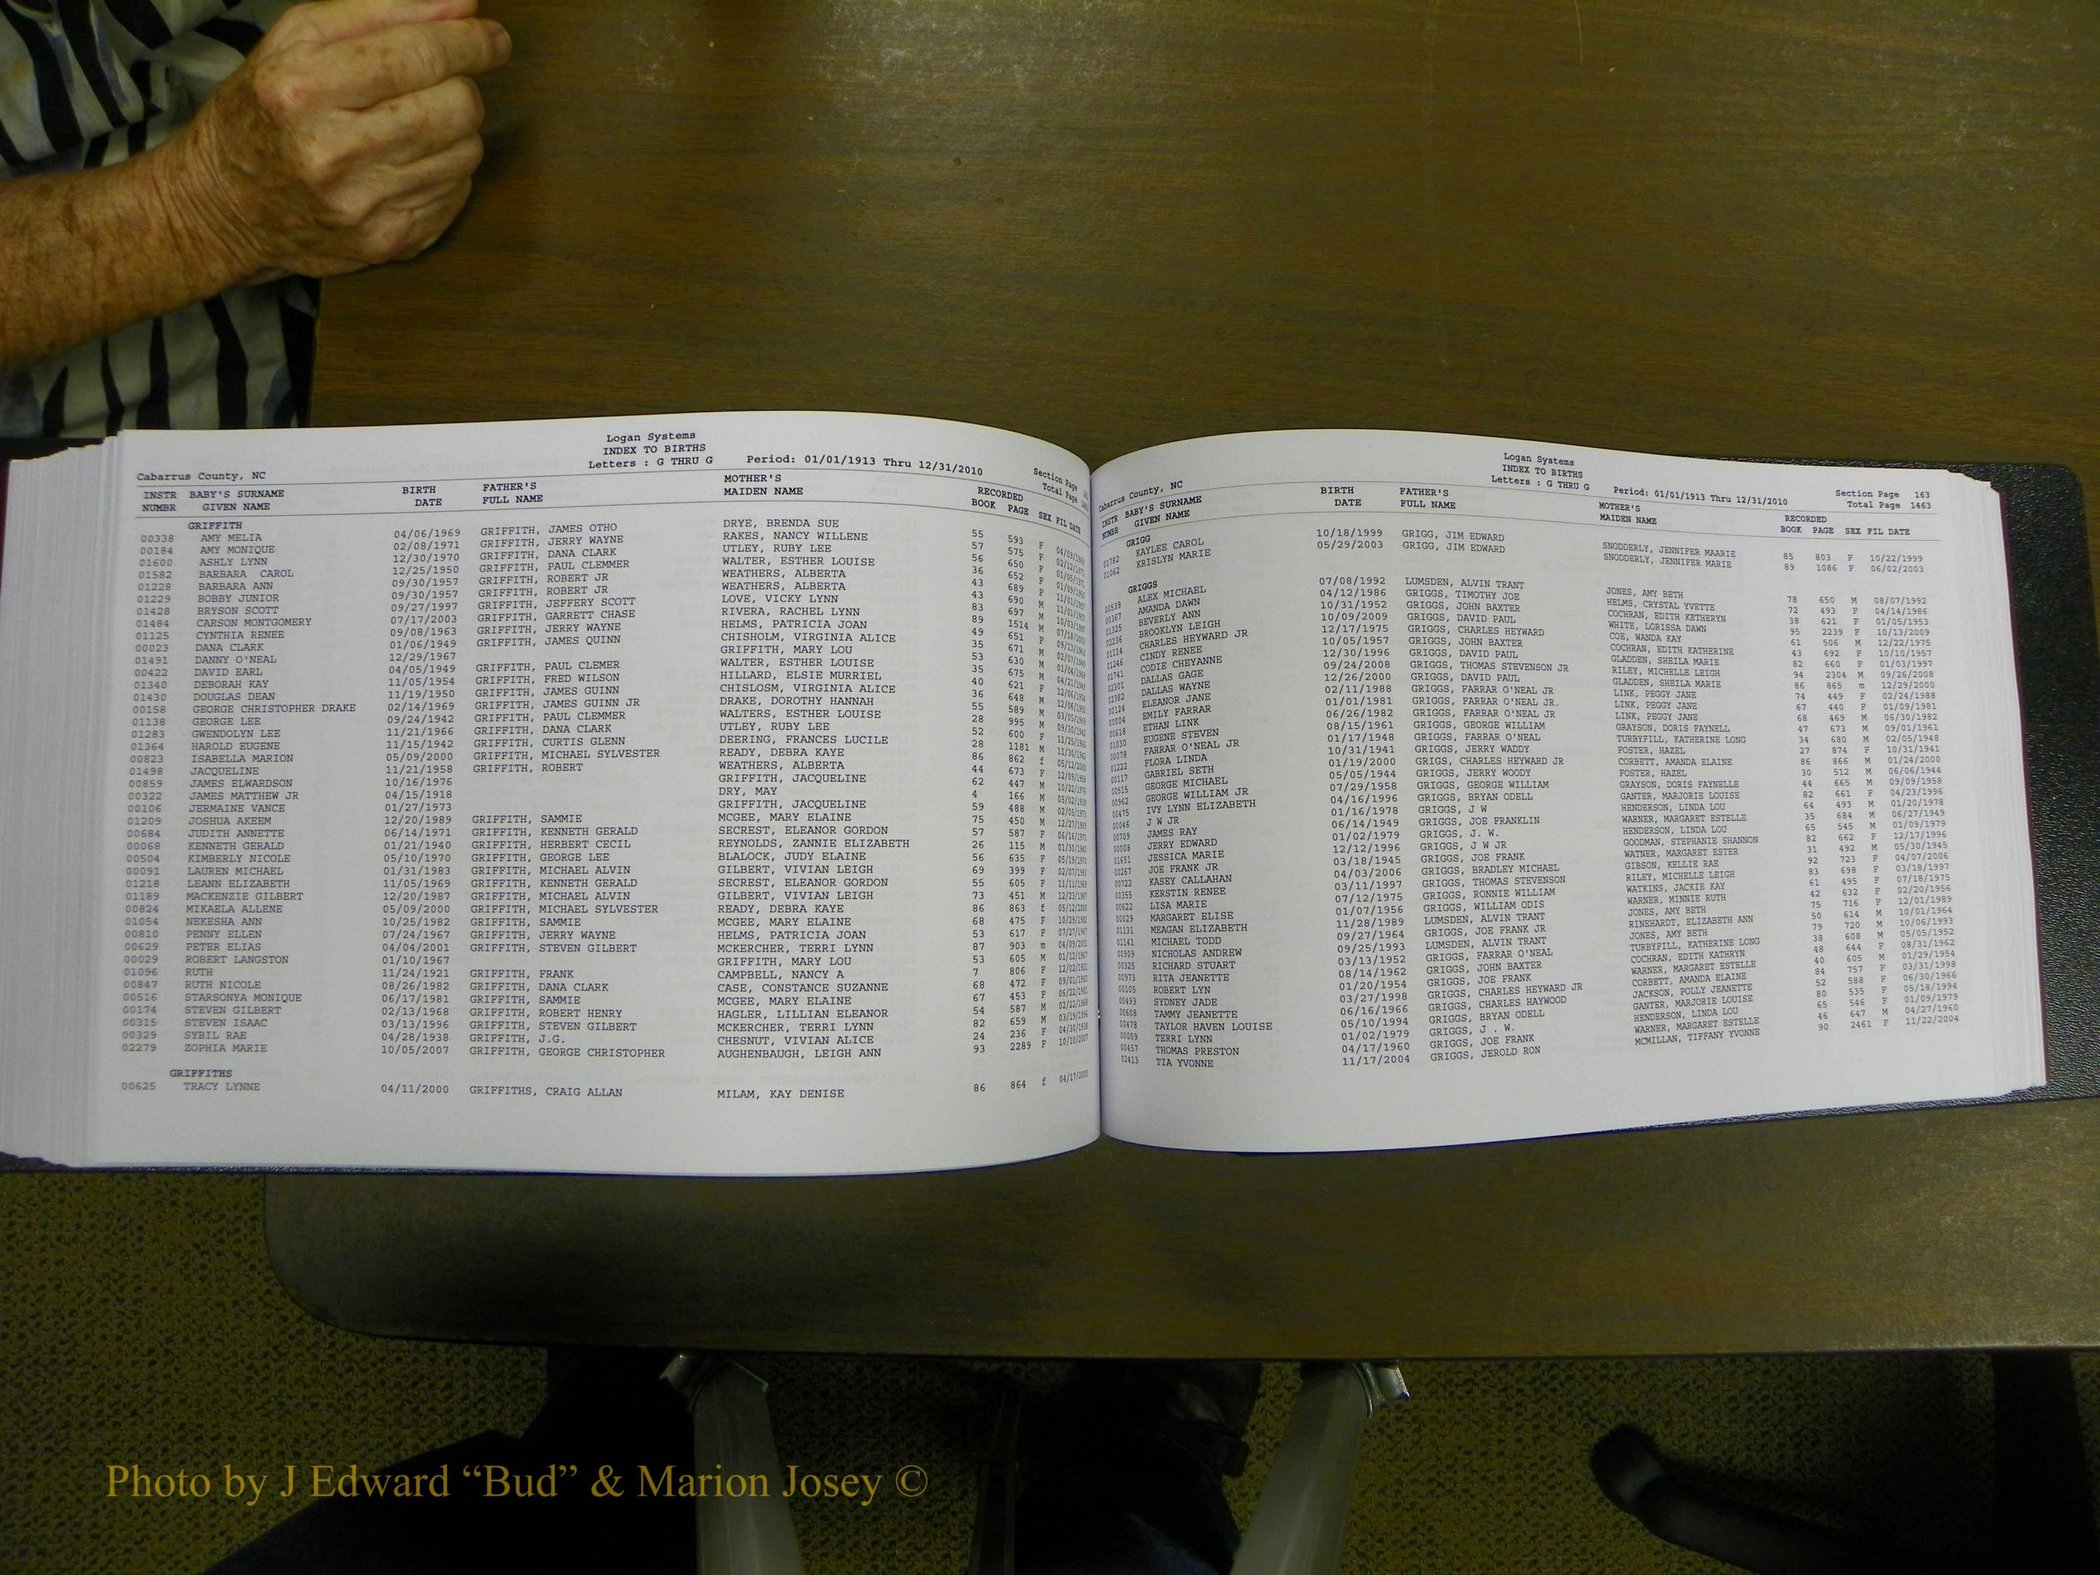 Logan Systems
INDEX TO BIRTHS
Cabarrus County, NC Letters : G THRU G Period: 01/01/1913 Thru 12/31/2010 Section Page
Total Page
INSTR BABY'S SURNAME BIRTH FATHER'S MOTHER'S RECORDED
NUMBR GIVEN NAME DATE FULL NAME MAIDEN NAME BOOK PAGE SEX FIL DATE
GRIFFITH
00338 AMY MELIA 04/06/1969 GRIFFITH, JAMES OTHO DRYE, BRENDA SUE 55 593 F 04/09/1969
00184 AMY MONIQUE 02/08/1971 GRIFFITH, JERRY WAYNE RAKES, NANCY WILLENE 57 575 F 02/12/1971
01600 ASHLY LYNN 12/30/1970 GRIFFITH, DANA CLARK UTLEY, RUBY LEE 56 650 F
01582 BARBARA CAROL 12/25/1950 GRIFFITH, PAUL CLEMMER WALTER, ESTHER LOUISE 36 652 F
01228 BARBARA ANN 09/30/1957 GRIFFITH, ROBERT JR WEATHERS, ALBERTA 43 689 F
01229 BOBBY JUNIOR 09/30/1957 GRIFFITH, ROBERT JR WEATHERS, ALBERTA 43 690 M
01428 BRYSON SCOTT 09/27/1997 GRIFFITH, JEFFERY SCOTT LOVE, VICKY LYNN 83 697 M
01484 CARSON MONTGOMERY 07/17/2003 GRIFFITH, GARRETT CHASE RIVERA, RACHEL LYNN 89 1514 M
01125 CYNTHIA RENEE 09/08/1963 GRIFFITH, JERRY WAYNE HELMS, PATRICIA JOAN 49 651 F
00023 DANA CLARK 01/06/1949 GRIFFITH, JAMES QUINN CHISHOLM, VIRGINIA ALICE 35 671 M
01491 DANNY O'NEAL 12/29/1967 GRIFFITH, MARY LOU 53 630 M
00422 DAVID EARL 04/05/1949 GRIFFITH, PAUL CLEMER WALTER, ESTHER LOUISE 35 675 M
01340 DEBORAH KAY 11/05/1954 GRIFFITH, FRED WILSON HILLARD, ELSIE MURRIEL 40 621 F
01430 DOUGLAS DEAN 11/19/1950 GRIFFITH, JAMES GUINN CHISLOSM, VIRGINIA ALICE 36 648 M
00158 GEORGE CHRISTOPHER DRAKE 02/14/1969 GRIFFITH, JAMES GUINN JR DRAKE, DOROTHY HANNAH 55 589 M
01138 GEORGE LEE 09/24/1942 GRIFFITH, PAUL CLEMMER WALTERS, ESTHER LOUISE 28 995 M
01283 GWENDOLYN LEE 11/21/1966 GRIFFITH, DANA CLARK UTLEY, RUBY LEE 52 600 F
01364 HAROLD EUGENE 11/15/1942 GRIFFITH, CURTIS GLENN DEERING, FRANCES LUCILE 28 1181 M
00823 ISABELLA MARION 05/09/2000 GRIFFITH, MICHAEL SYLVESTER READY, DEBRA KAYE 86 862 f 05/12/2000
01498 JACQUELINE 11/21/1958 GRIFFITH, ROBERT WEATHERS, ALBERTA 44 673 F
00859 JAMES ELWARDSON 10/16/1976 GRIFFITH, JACQUELINE 62 447 M
00322 JAMES MATTHEW JR 04/15/1918 DRY, MAY 4 166 M
00106 JERMAINE VANCE 01/27/1973 GRIFFITH, JACQUELINE 59 488 M
01209 JOSHUA AKEEM 12/20/1989 GRIFFITH, SAMMIE MCGEE, MARY ELAINE 75 450 M
00684 JUDITH ANNETTE 06/14/1971 GRIFFITH, KENNETH GERALD SECREST, ELEANOR GORDON 57 587 F
00068 KENNETH GERALD 01/21/1940 GRIFFITH, HERBERT CECIL REYNOLDS, ZANNIE ELIZABETH 26 115 M
00504 KIMBERLY NICOLE 05/10/1970 GRIFFITH, GEORGE LEE BLALOCK, JUDY ELAINE 56 635 F
00091 LAUREN MICHAEL 01/31/1983 GRIFFITH, MICHAEL ALVIN GILBERT, VIVIAN LEIGH 69 399 F
01218 LEANN ELIZABETH 11/05/1969 GRIFFITH, KENNETH GERALD SECREST, ELEANOR GORDON 55 605 F
01189 MACKENZIE GILBERT 12/20/1987 GRIFFITH, MICHAEL ALVIN GILBERT, VIVIAN LEIGH 73 451 M
00824 MIKAELA ALLENE 05/09/2000 GRIFFITH, MICHAEL SYLVESTER READY, DEBRA KAYE 86 863 f 05/12/2000
01054 NEKESHA ANN 10/25/1982 GRIFFITH, SAMMIE MCGEE, MARY ELAINE 68 475 F 10/29/1982
00810 PENNY ELLEN 07/24/1967 GRIFFITH, JERRY WAYNE HELMS, PATRICIA JOAN 53 617 F 07/27/1967
00629 PETER ELIAS 04/04/2001 GRIFFITH, STEVEN GILBERT MCKERCHER, TERRI LYNN 87 903 m 04/09/2001
00029 ROBERT LANGSTON 01/10/1967 GRIFFITH, MARY LOU 53 605 M 01/12/1967
01096 RUTH 11/24/1921 GRIFFITH, FRANK CAMPBELL, NANCY A 7 806 F
00847 RUTH NICOLE 08/26/1982 GRIFFITH, DANA CLARK CASE, CONSTANCE SUZANNE 68 472 F 09/01/1982
00516 STARSONYA MONIQUE 06/17/1981 GRIFFITH, SAMMIE MCGEE, MARY ELAINE 67 453 F 06/22/1981
00174 STEVEN GILBERT 02/13/1968 GRIFFITH, ROBERT HENRY HAGLER, LILLIAN ELEANOR 54 587 M 02/22/1968
00315 STEVEN ISAAC 03/13/1996 GRIFFITH, STEVEN GILBERT MCKERCHER, TERRI LYNN 82 659 M 03/19/1996
00329 SYBIL RAE 04/28/1938 GRIFFITH, J.G. CHESNUT, VIVIAN ALICE 24 236 F 04/30/1938
02279 ZOPHIA MARIE 10/05/2007 GRIFFITH, GEORGE CHRISTOPHER AUGHENBAUGH, LEIGH ANN 93 2289 F 10/10/2007
GRIFFITHS
00625 TRACY LYNNE 04/11/2000 GRIFFITHS, CRAIG ALLAN MILAM, KAY DENISE 86 864 f 04/17/2000
Logan Systems
INDEX TO BIRTHS
Cabarrus County, NC Letters : G THRU G Period: 01/01/1913 Thru 12/31/2010 Section Page 163
Total Page 1463
INSTR BABY'S SURNAME BIRTH FATHER'S MOTHER'S RECORDED
NUMBR GIVEN NAME DATE FULL NAME MAIDEN NAME BOOK PAGE SEX FIL DATE
GRIGG
01782 KAYLEE CAROL 10/18/1999 GRIGG, JIM EDWARD SNODDERLY, JENNIFER MAARIE 85 803 F 10/22/1999
01062 KRISLYN MARIE 05/29/2003 GRIGG, JIM EDWARD SNODDERLY, JENNIFER MARIE 89 1086 F 06/02/2003
GRIGGS
00539 ALEX MICHAEL 07/08/1992 LUMSDEN, ALVIN TRANT JONES, AMY BETH 78 650 M 08/07/1992
00367 AMANDA DAWN 04/12/1986 GRIGGS, TIMOTHY JOE HELMS, CRYSTAL YVETTE 72 493 F 04/14/1986
01325 BEVERLY ANN 10/31/1952 GRIGGS, JOHN BAXTER COCHRAN, EDITH KETHERYN 38 621 F 01/05/1953
02236 BROOKLYN LEIGH 10/09/2009 GRIGGS, DAVID PAUL WHITE, LORISSA DAWN 95 2239 F 10/13/2009
01114 CHARLES HEYWARD JR 12/17/1975 GRIGGS, CHARLES HEYWARD COE, WANDA KAY 61 506 M 12/22/1975
01246 CINDY RENEE 10/05/1957 GRIGGS, JOHN BAXTER COCHRAN, EDITH KATHERINE 43 692 F 10/10/1957
01741 CODIE CHEYANNE 12/30/1996 GRIGGS, DAVID PAUL GLADDEN, SHEILA MARIE 82 660 F 01/03/1997
02301 DALLAS GAGE 09/24/2008 GRIGGS, THOMAS STEVENSON JR RILEY, MICHELLE LEIGH 94 2304 M 09/26/2008
02382 DALLAS WAYNE 12/26/2000 GRIGGS, DAVID PAUL GLADDEN, SHEILA MARIE 86 865 m 12/29/2000
00124 ELEANOR JANE 02/11/1988 GRIGGS, FARRAR O'NEAL JR LINK, PEGGY JANE 74 449 F 02/24/1988
00004 EMILY FARRAR 01/01/1981 GRIGGS, FARRAR O'NEAL JR. LINK, PEGGY JANE 67 440 F 01/09/1981
00618 ETHAN LINK 06/26/1982 GRIGGS, FARRAR O'NEAL JR LINK, PEGGY JANE 68 469 M 06/30/1982
01030 EUGENE STEVEN 08/15/1961 GRIGGS, GEORGE WILLIAM GRAYSON, DORIS PAYNELL 47 673 M 09/01/1961
00078 FARRAR O'NEAL JR 01/17/1948 GRIGGS, FARRAR O'NEAL TURBYFILL, KATHERINE LONG 34 680 M 02/05/1948
01222 FLORA LINDA 10/31/1941 GRIGGS, JERRY WADDY FOSTER, HAZEL 27 874 F 10/31/1941
00117 GABRIEL SETH 01/19/2000 GRIGS, CHARLES HEYWARD JR CORBETT, AMANDA ELAINE 86 866 M 01/24/2000
00515 GEORGE MICHAEL 05/05/1944 GRIGGS, JERRY WOODY FOSTER, HAZEL 30 512 M 06/06/1944
00962 GEORGE WILLIAM JR 07/29/1958 GRIGGS, GEORGE WILLIAM GRAYSON, DORIS FAYNELLE 44 665 M 09/09/1958
00475 IVY LYNN ELIZABETH 04/16/1996 GRIGGS, BRYAN ODELL GANTER, MARJORIE LOUISE 82 661 F 04/23/1996
00046 J W JR 01/16/1978 GRIGGS, J W HENDERSON, LINDA LOU 64 493 M 01/20/1978
00709 JAMES RAY 06/14/1949 GRIGGS, JOE FRANKLIN WARNER, MARGARET ESTELLE 35 684 M 06/27/1949
00008 JERRY EDWARD 01/02/1979 GRIGGS, J. W. HENDERSON, LINDA LOU 65 545 M 01/09/1979
01651 JESSICA MARIE 12/12/1996 GRIGGS, J W JR GOODMAN, STEPHANIE SHANNON 82 662 F 12/17/1996
00267 JOE FRANK JR 03/18/1945 GRIGGS, JOE FRANK WATNER, MARGARET ESTER 31 492 M 05/30/1945
00722 KASEY CALLAHAN 04/03/2006 GRIGGS, BRADLEY MICHAEL GIBSON, KELLIE RAE 92 723 F 04/07/2006
00355 KERSTIN RENEE 03/11/1997 GRIGGS, THOMAS STEVENSON RILEY, MICHELLE LEIGH 83 698 F 03/18/1997
00622 LISA MARIE 07/12/1975 GRIGGS, RONNIE WILLIAM WATKINS, JACKIE KAY 61 495 F 07/18/1975
00029 MARGARET ELISE 01/07/1956 GRIGGS, WILLIAM ODIS WARNER, MINNIE RUTH 42 632 F 02/20/1956
01131 MEAGAN ELIZABETH 11/28/1989 LUMSDEN, ALVIN TRANT JONES, AMY BETH 75 716 F 12/01/1989
01141 MICHAEL TODD 09/27/1964 GRIGGS, JOE FRANK JR RINEHARDT, ELIZABETH ANN 50 614 M 10/01/1964
00909 NICHOLAS ANDREW 09/25/1993 LUMSDEN, ALVIN TRANT JONES, AMY BETH 79 720 M 10/06/1993
00325 RICHARD STUART 03/13/1952 GRIGGS, FARRAR O'NEAL TURBYFILL, KATHERINE LONG 38 608 M 05/05/1952
00973 RITA JEANETTE 08/14/1962 GRIGGS, JOHN BAXTER COCHRAN, EDITH KATHRYN 48 644 F 08/31/1962
00105 ROBERT LYN 01/20/1954 GRIGGS, JOE FRANK WARNER, MARGARET ESTELLE 40 605 M 01/29/1954
00493 SYDNEY JADE 03/27/1998 GRIGGS, CHARLES HEYWARD JR CORBETT, AMANDA ELAINE 84 757 F 03/31/1998
00608 TAMMY JEANETTE 06/16/1966 GRIGGS, CHARLES HAYWOOD JACKSON, POLLY JEANETTE 52 588 F 06/30/1966
00478 TAYLOR HAVEN LOUISE 05/10/1994 GRIGGS, BRYAN ODELL GANTER, MARJORIE LOUISE 80 535 F 05/18/1994
00009 TERRI LYNN 01/02/1979 GRIGGS, J . W. HENDERSON, LINDA LOU 65 546 F 01/09/1979
00457 THOMAS PRESTON 04/17/1960 GRIGGS, JOE FRANK WARNER, MARGARET ESTELLE 46 647 M 04/27/1960
02413 TIA YVONNE 11/17/2004 GRIGGS, JEROLD RON MCMILLAN, TIFFANY YVONNE 90 2461 F 11/22/2004
Photo by J Edward “Bud” & Marion Josey ©